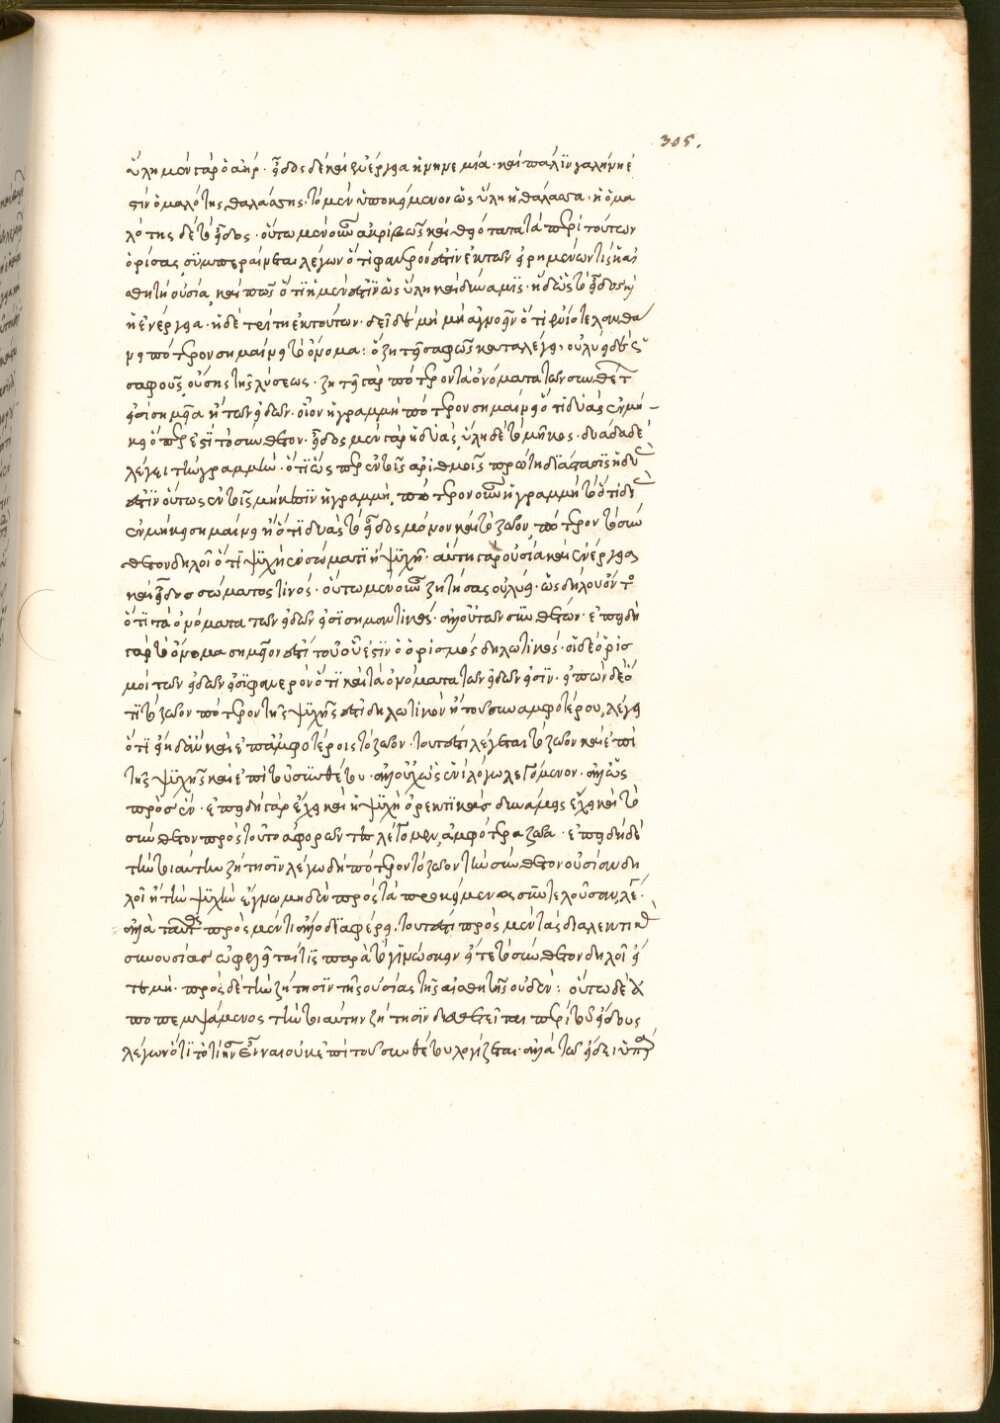 305.
ὕλη μὲν γὰρ ὁ ἀήρ · εἶδος δὲ καὶ ἐνέργεια ἡ νηνεμία · καὶ πάλιν γαλήνη ἐ
στὶν ὁμαλότης θαλάσσης · τὸ μὲν ὑποκείμενον ὡς ὕλη ἡ θάλασσα · ἡ ὁμα
λότης δὲ τὸ εἶδος · οὕτω μὲν οὖν ἀκριβῶς καὶ τὰ περὶ τούτων
ὁρίσας συμπεραίνεται λέγων ὅτι φανερὸν ἐστὶν ἐκ τῶν εἰρημένων τίς ἡ αἰ
σθητὴ οὐσία καὶ πῶς ὅτι ἡ μὲν ἐστὶν ὡς ὕλη καὶ δυνάμις · ἡ δ ὡς τὸ εἶδος
ἡ ἐνέργεια · ἡ δὲ τρίτη ἐκ τούτων · δεῖ δὲ μὴ ἀγνοεῖν ὅτι ἐνίοτε λανθά
νει πότερον σημαίνει τὸ ὄνομα : ὃ ζητεῖ σαφῶς καταλέγει, οὐ λύει δὲ ὡς
σαφοῦς οὔσης τῆς λύσεως · ζητεῖ γὰρ πότερον τὰ ὀνόματα τῶν συνθέτ
εἰσὶ σημεῖα ἢ τῶν εἰδῶν · οἷον ἡ γραμμὴ πότερον σημαίνει ὅτι δυὰς ἐν μή
κει ὅπερ ἐστὶ τὸ σύνθετον · εἶδος μὲν γὰρ ἡ δυάς, ὕλη δὲ τὸ μῆκος · δυάδα δὲ
λέγει τὴν γραμμὴν · ὅτι ὥσπερ ἐν τοῖς ἀριθμοῖς πρώτη διάστασις ἡ δυ
ἐστὶν οὕτως ἐν τοῖς μήκεσιν ἡ γραμμή, πότερον οὖν ἡ γραμμὴ τὸ ὅτι δυ
ἐν μήκει σημαίνει ἢ ὅτι δυὰς τὸ εἶδος μόνον καὶ τὸ ζῶον πότερον τὸ σύν
θετον δηλοῖ ὅτι ψυχὴ ἐν σώματι ἢ ψυχή · αὕτη γὰρ οὐσία καὶ ἐνέργεια
καὶ εἶδος σώματος τινός · οὕτω μὲν οὖν ζητήσας οὐ λύει · ὡς δῆλον ὂν τὸ
ὅτι τὰ ὀνόματα τῶν εἰδῶν εἰσὶ σημαντικά · ἀλλ' οὐ τῶν συνθέτων · ἐπειδὴ
γὰρ τὸ ὄνομα σημεῖον ἐστὶ τοῦ οὗ ἐστὶν ὁ ὁρισμὸς δηλωτικός · οἱ δὲ ὁρισ
μοὶ τῶν εἰδῶν εἰσὶ φανερὸν ὅτι καὶ τὰ ὀνόματα τῶν εἰδῶν εἰσίν · εἰπὼν δὲ ὅ
τι τὸ ζῶον πότερον τῆς ψυχῆς ἐστὶ δηλωτικὸν ἢ τοῦ συναμφοτέρου, λέγει
ὅτι εἴη δ' ἂν καὶ ἐπ' ἀμφοτέροις τὸ ζῶον · τουτέστι λέγεται τὸ ζῶον καὶ ἐπὶ
τῆς ψυχῆς καὶ ἐπὶ τοῦ συνθέτου · ἀλλ' οὐχ ὡς ἑνὶ λόγω λεγόμενον · ἀλλ' ὡς
πρὸς ἕν · ἐπειδὴ γὰρ ἔχει καὶ ἡ ψυχὴ ὀρεκτικὰς δυνάμεις ἔχει καὶ τὸ
σύνθετον πρὸς τοῦτο ἀφορῶντες λέγομεν ἀμφότερα ζῶα · ἐπειδὴ δὲ
τὴν τοιαύτην ζήτησιν λέγω δὴ πότερον τὸ ζῶον τὴν σύνθετον οὐσίαν δη
λοῖ ἢ τὴν ψυχὴν ἔγνω μηδὲν πρὸς τὰ προκείμενα συντελοῦσαν, λέ
ἀλλὰ ταῦτα πρὸς μέν τι ἄλλο διαφέρει · τουτέστι πρὸς μὲν τὰς διαλεκτικὰ
συνουσίας ὠφελεῖταί τις παρὰ τὸ γινώσκειν εἴτε τὸ σύνθετον δηλοῖ εἴ
τε μή · πρὸς δὲ τὴν ζήτησιν τῆς οὐσίας τῆς αἰσθητῆς οὐδέν : οὕτω δὲ ἀ
ποπεμψάμενος τὴν τοιαύτην ζήτησιν διαιτεῖται περὶ τοῦ εἴδους
λέγων ὅτι τὸ τί ἦν εἶναι οὐκ ἐπὶ τοῦ συνθέτου λογίζεται · ἀλλὰ τῷ εἴδει ὑπάρ